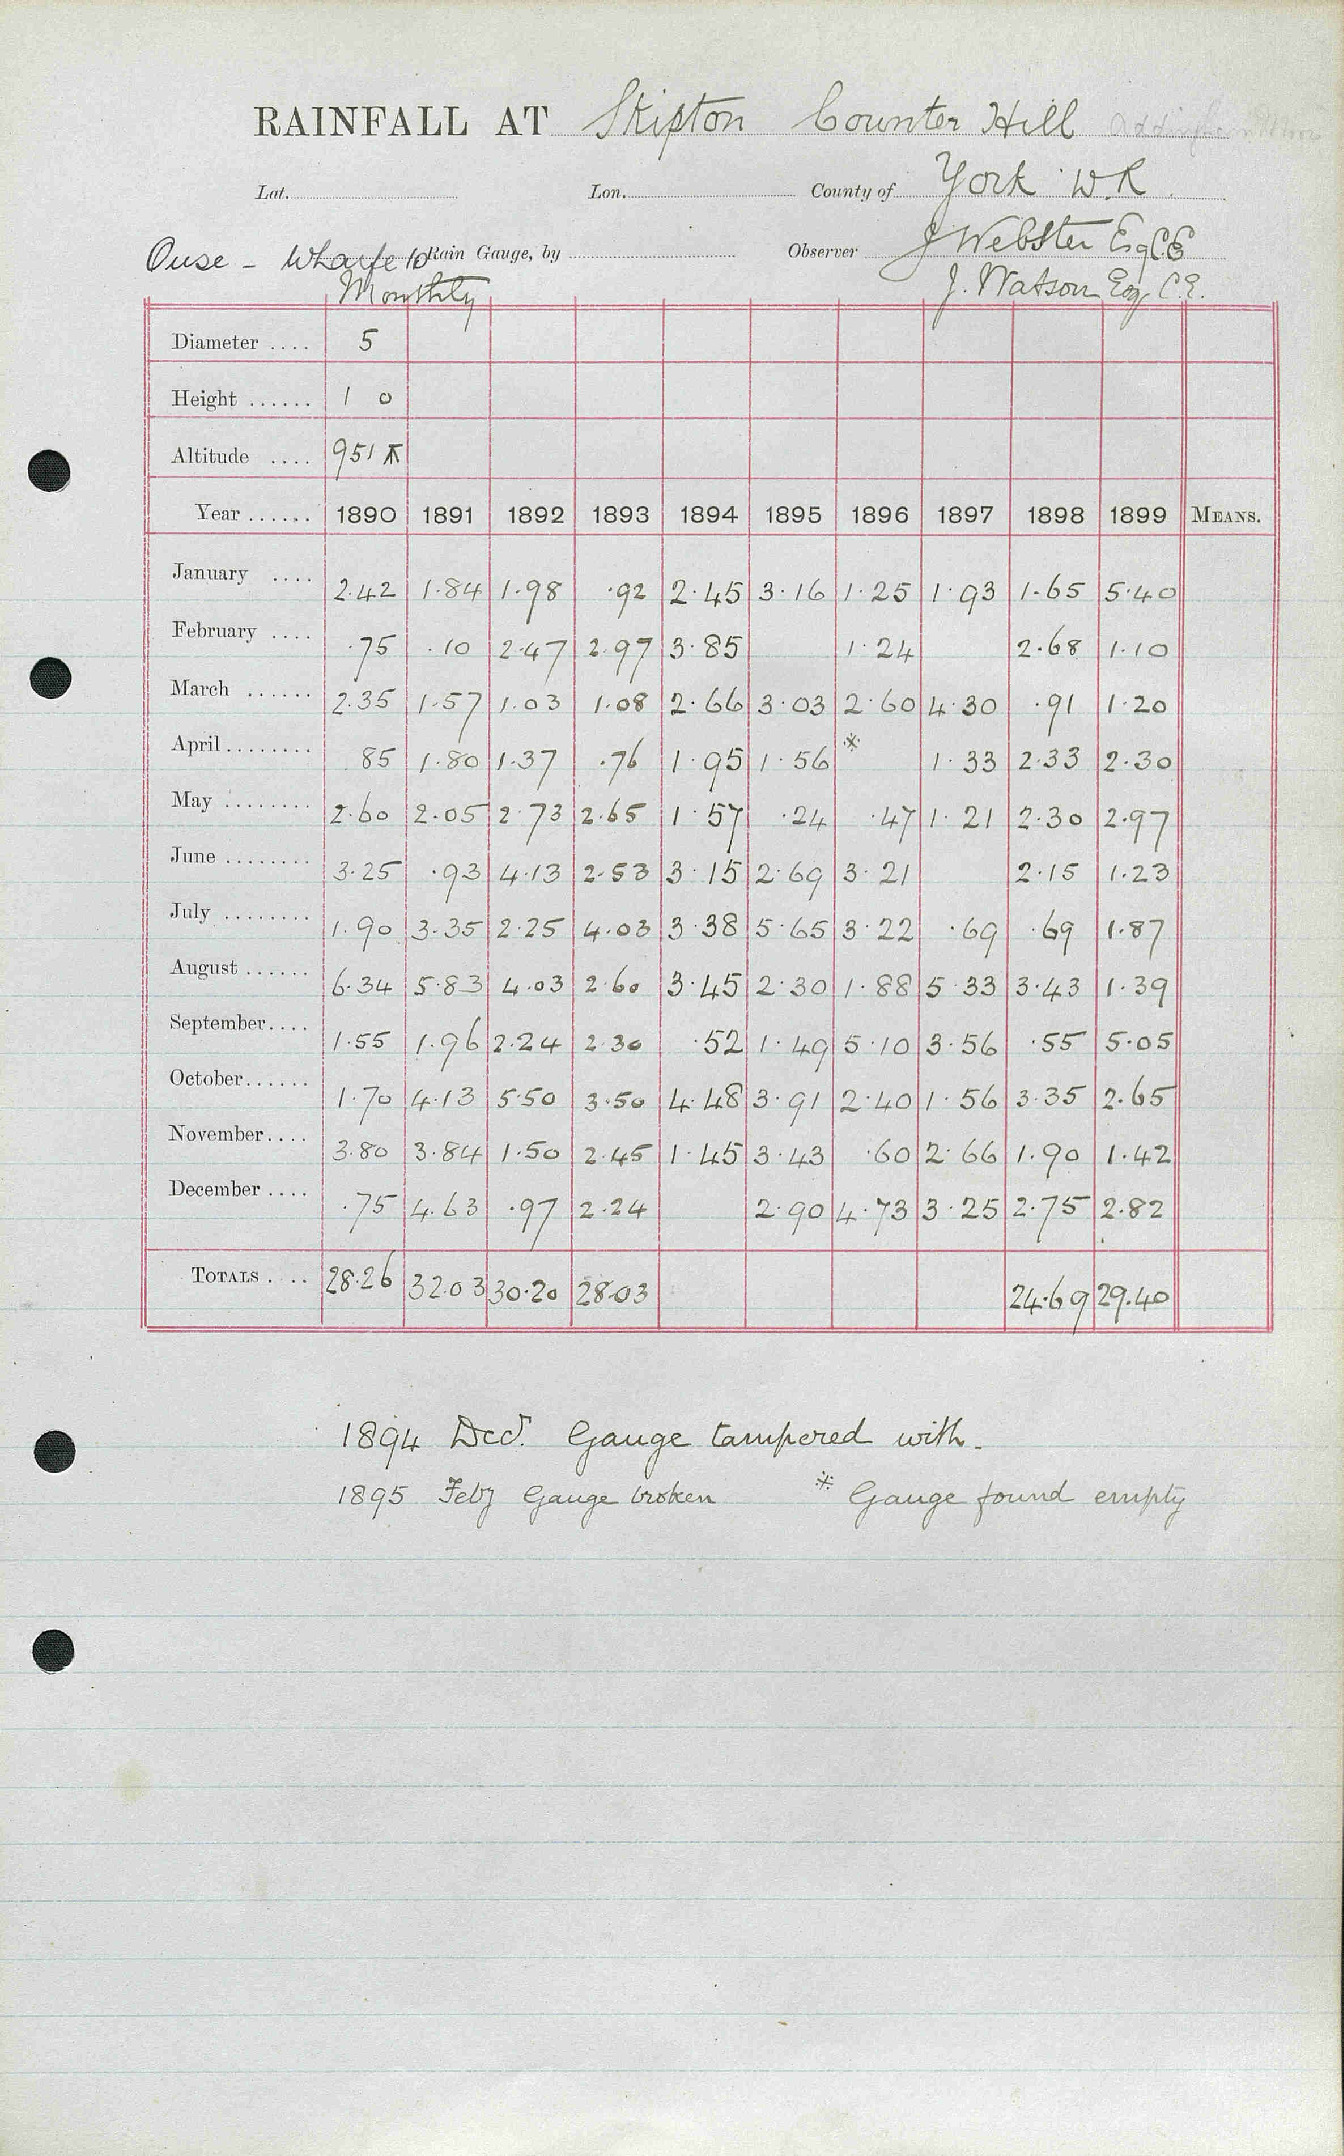 RAINFALL AT Skipton Counter Hill Addingham Moor
Lat. Lon. County of York W.R.
Ouse - Wharfe 10 Rain Gauge, by Observer J Webster Esq CE
Monthly J. Watson Esq C.E.
Diameter .... 5
Height ...... 1 0
Altitude .... 951
Year ...... 1890 1891 1892 1893 1894 1895 1896 1897 1898 1899 MEANS.
January .... 2.42 1.84 1.98 .92 2.45 3.16 1.25 1.93 1.65 5.40
February .... .75 .10 2.47 2.97 3.85 1.24 2.68 1.10
March ...... 2.35 1.57 1.03 1.08 2.66 3.03 2.60 4.30 .91 1.20
April ........ 85 1.80 1.37 .76 1.95 1.56 * 1.33 2.33 2.30
May ........ 2.60 2.05 2.73 2.65 1.57 .24 .47 1.21 2.30 2.97
June ........ 3.25 .93 4.13 2.53 3.15 2.69 3.21 2.15 1.23
July ........ 1.90 3.35 2.25 4.03 3.38 5.65 3.22 .69 .69 1.87
August ...... 6.34 5.83 4.03 2.60 3.45 2.30 1.88 5.33 3.43 1.39
September.... 1.55 1.96 2.24 2.30 .52 1.49 5.10 3.56 .55 5.05
October...... 1.70 4.13 5.50 3.50 4.48 3.91 2.40 1.56 3.35 2.65
November.... 3.80 3.84 1.50 2.45 1.45 3.43 .60 2.66 1.90 1.42
December .... .75 4.63 .97 2.24 2.90 4.73 3.25 2.75 2.82
TOTALS .... 28.26 32.03 30.20 28.03 24.69 29.40
1894 Decr. Gauge tampered with.
1895 Feby Gauge broken * Gauge found empty